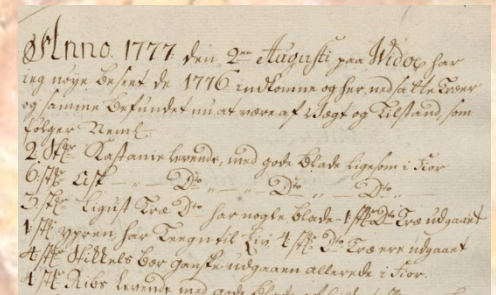 Anno 1777 den 2den Augusti paa Widøe har
ieg nøye Beseet de 1776 indkomne og her nedsatte Træer
og samme befundet nu at være af Vext og Tilstand, som
følger Neml:
2 Stkr Kastanie levende, med gode blade ligesom i Fior
6 stkr Ask — " — Dto — " — " — Dto — " — Dto —
5 stkr Ligust Træ Dto har nogle blade - 1 stk Dto Træ udgaaet
1 stk ypren har Teegn til Liv, 4 stk Dto Træ ere udgaaet
4 stkr Stikkels bær ganske udgaaen allerede i Fior.
4 stkr Ribs levende med gode blade